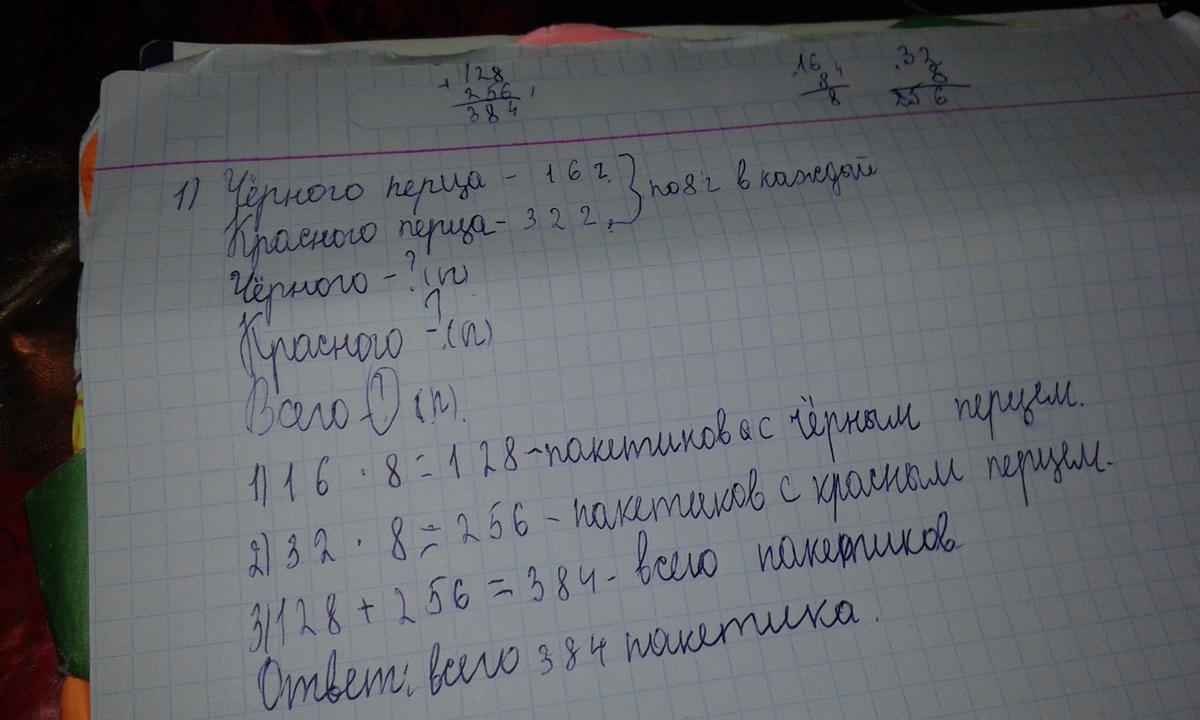 +128
256
384
16 4
8
8
32
8
256
1) Чёрного перца - 16 г.
Красного перца - 32 г. } по 8 г в каждой
Чёрного - ? (п)
Красного - ? (п)
Всего - ? (п).
1) 16 · 8 = 128 - пакетиков с чёрным перцем.
2) 32 · 8 = 256 - пакетиков с красным перцем.
3) 128 + 256 = 384 - всего пакетиков
Ответ: всего 384 пакетика.